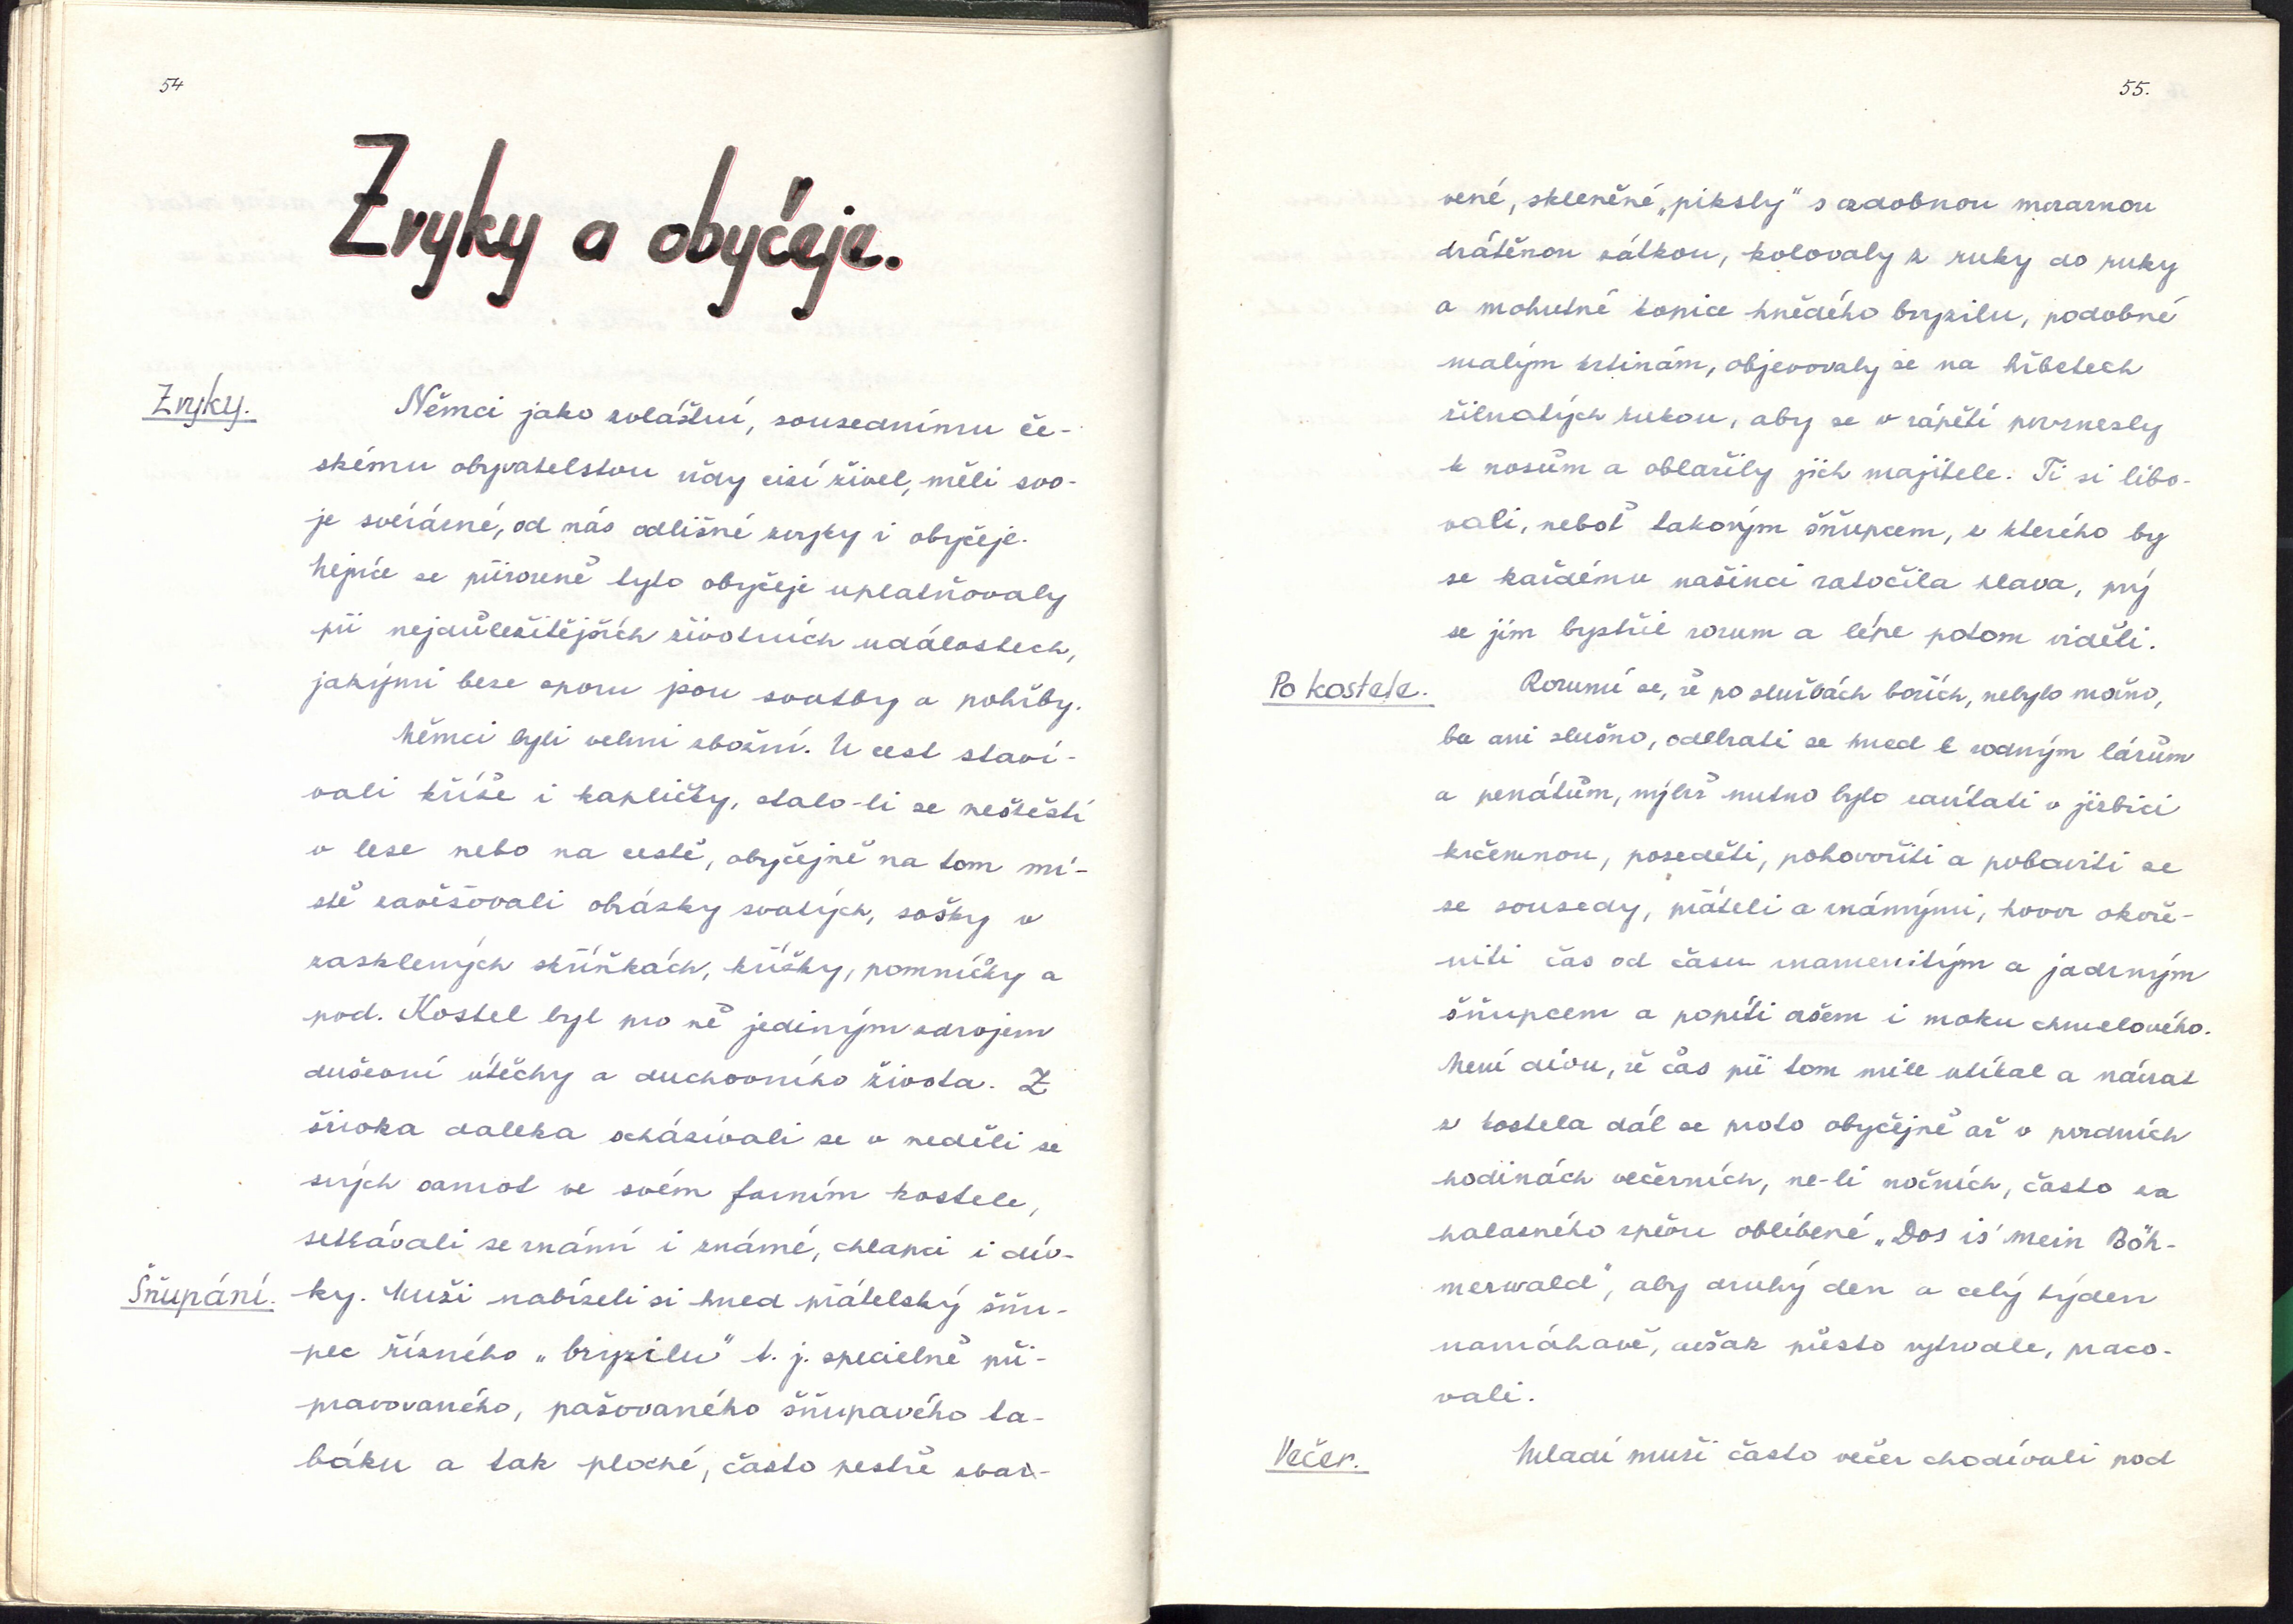 54
Zvyky a obyčeje.
Zvyky.
Němci jako zvláštní, sousednímu če-
skému obyvatelstvu vždy cizí živel, měli svo-
je svérázné, od nás odlišné zvyky i obyčeje.
Nejvíce se přirozeně tyto obyčeje uplatňovaly
při nejdůležitějších životních událostech,
jakými beze sporu jsou svatby a pohřby.
Němci byli velmi zbožní. U cest staví-
vali kříže i kapličky, stalo-li se neštěstí
v lese nebo na cestě, obyčejně na tom mí-
stě zavěšovali obrázky svatých, sošky v
zasklených skříňkách, křížky, pomníčky a
pod. Kostel byl pro ně jediným zdrojem
duševní útěchy a duchovního života. Z
široka daleka scházívali se v neděli se
svých samot ve svém farním kostele,
setkávali se známí i známé, chlapci i dív-
Šňupání.
ky. Muži nabízeli si hned přátelský šňu-
pec řízného „bryzilu" t. j. specielně při-
pravovaného, pašovaného šňupavého ta-
báku a tak ploché, často pestře zbar-
55.
vené, skleněné „piksly" s ozdobnou mazanou
drátěnou zátkou, kolovaly z ruky do ruky
a mohutné kopice hnědého bryzilu, podobné
malým krtinám, objevovaly se na hřbetech
žilnatých rukou, aby se v zápětí povznesly
k nosům a oblažily jich majitele. Ti si libo-
vali, neboť takovým šňupcem, z kterého by
se každému našinci zatočila hlava, prý
se jim bystřil rozum a lépe potom viděli.
Po kostele.
Rozumí se, že po službách božích, nebylo možno,
ba ani slušno, odebrati se hned k rodným lárům
a penátům, nýbrž nutno bylo zavítati v jizbici
krčemnou, poseděti, pohovořiti a pobaviti se
se sousedy, přáteli a známými, hovor okoře-
niti čas od času znamenitým a jadrným
šňupcem a popíti ášem i moku chmelového.
Není divu, že čas při tom mile utíkal a návrat
z kostela dál se proto obyčejně až v pozdních
hodinách večerních, ne-li nočních, často za
halasného zpěvu oblíbené „Dos is' mein Böh-
merwald", aby druhý den a celý týden
namáhavě, avšak přesto vytrvale, praco-
vali.
Večer.
Mladí muži často večer chodívali pod